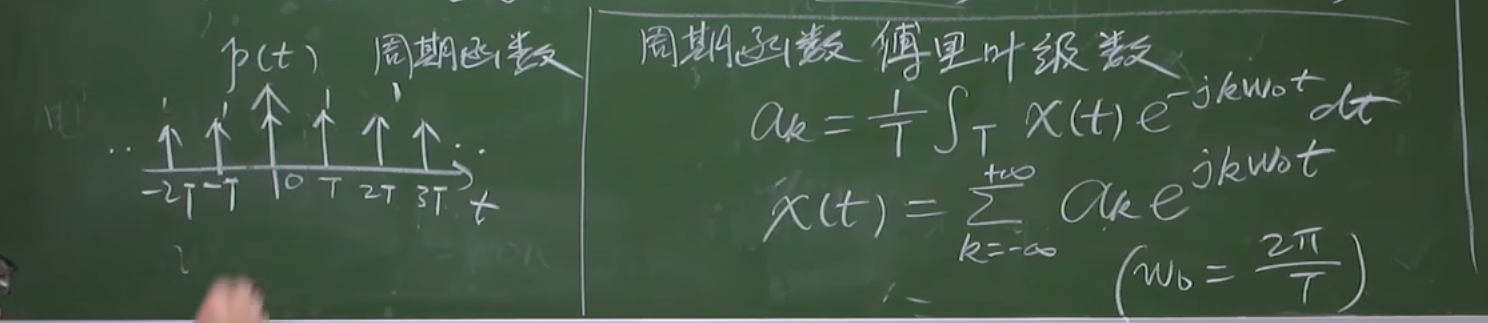 p(t) 周期函数
1 1 1 1
-2T -T 0 T 2T 3T t
周期函数 傅里叶级数
aₖ = 1/T ∫_T x(t) e^{-jkω₀t} dt
x(t) = Σ_{k=-∞}^{+∞} aₖ e^{jkω₀t}
(ω₀ = 2π/T)